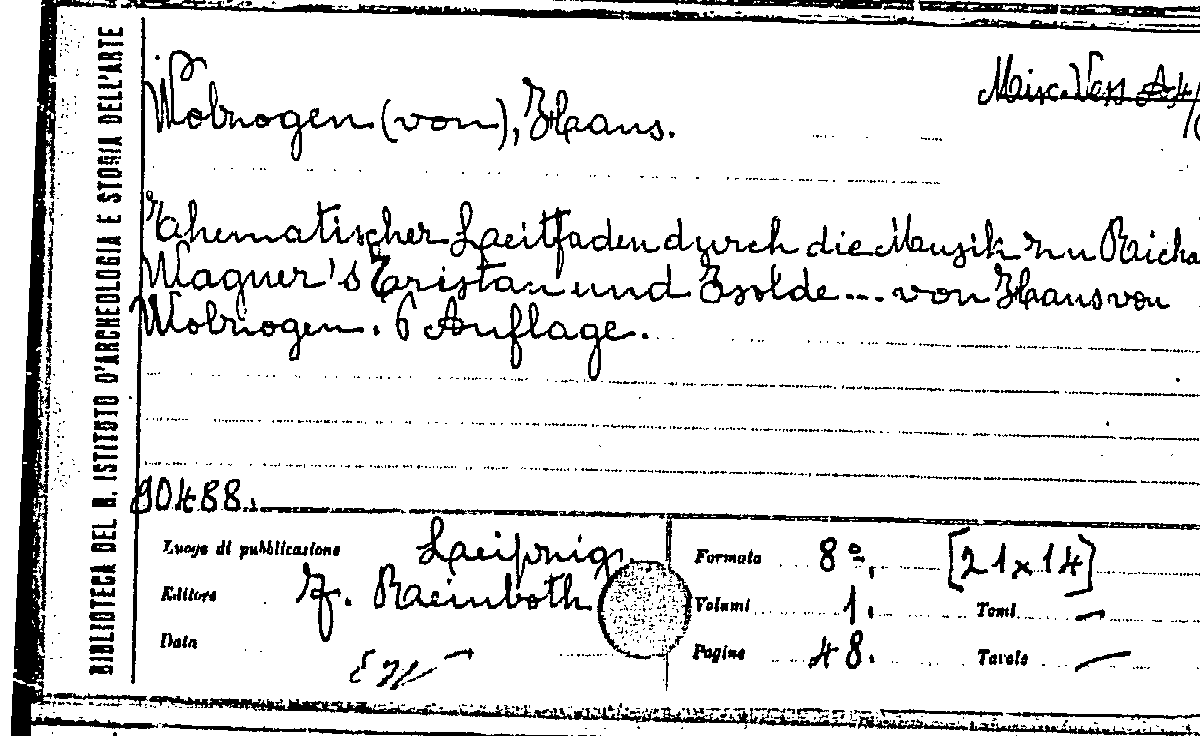 BIBLIOTECA DEL R. ISTITUTO D'ARCHEOLOGIA E STORIA DELL'ARTE
Misc. Vess
Wolzogen (von), Hans.
Thematischer Leitfaden durch die Musik zu Richa
Wagner's Tristan und Isolde ... von Hans von
Wolzogen. 6 Auflage.
90488.
Luogo di pubblicazione Leipzig.
Formato 8º, [21x14]
Editore F. Reinboth
Volumi 1. Tomi —
Data
Pagine 48. Tavole —